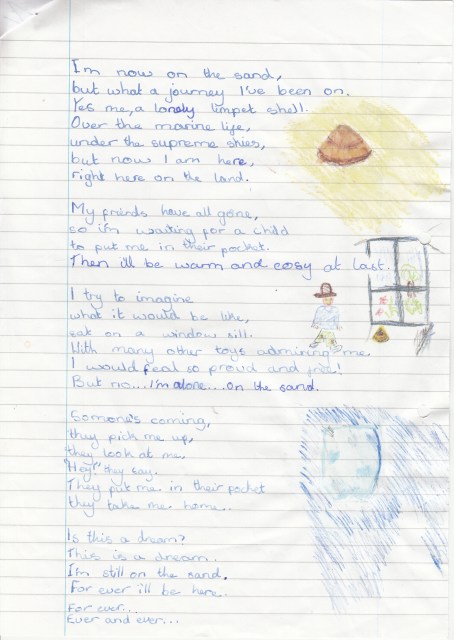 I'm now on the sand,
but what a journey I've been on.
Yes me, a lonely limpet shell.
Over the marine life,
under the supreme skies,
but now I am here,
right here on the land.
My friends have all gone,
so i'm waiting for a child
to put me in their pocket.
Then i'll be warm and cosy at last.
I try to imagine
what it would be like,
sat on a window sill.
With many other toys admiring me.
I would feal so proud and free!
But no...I'm alone...on the sand.
Somone's coming,
they pick me up,
they look at me,
"Hey!" they say.
They put me in their pocket
they take me home..
Is this a dream?
This is a dream..
I'm still on the sand.
For ever i'll be here..
For ever...
Ever and ever...